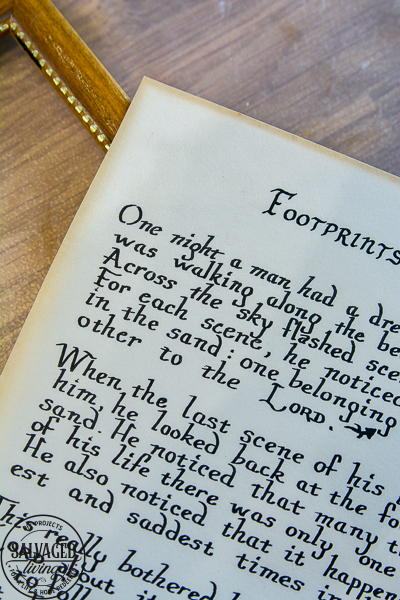 FOOTPRINTS
One night a man had a dre
was walking along the be
Across the sky flashed sce
For each scene, he noticed
in the sand: one belonging
other to the LORD.
When the last scene of his
him, he looked back at the fo
sand. He noticed that many t
of his life there was only one
He also noticed that it happen
est and saddest times in
This really bothered h
about it
PROJECTS
SALVAGED
living